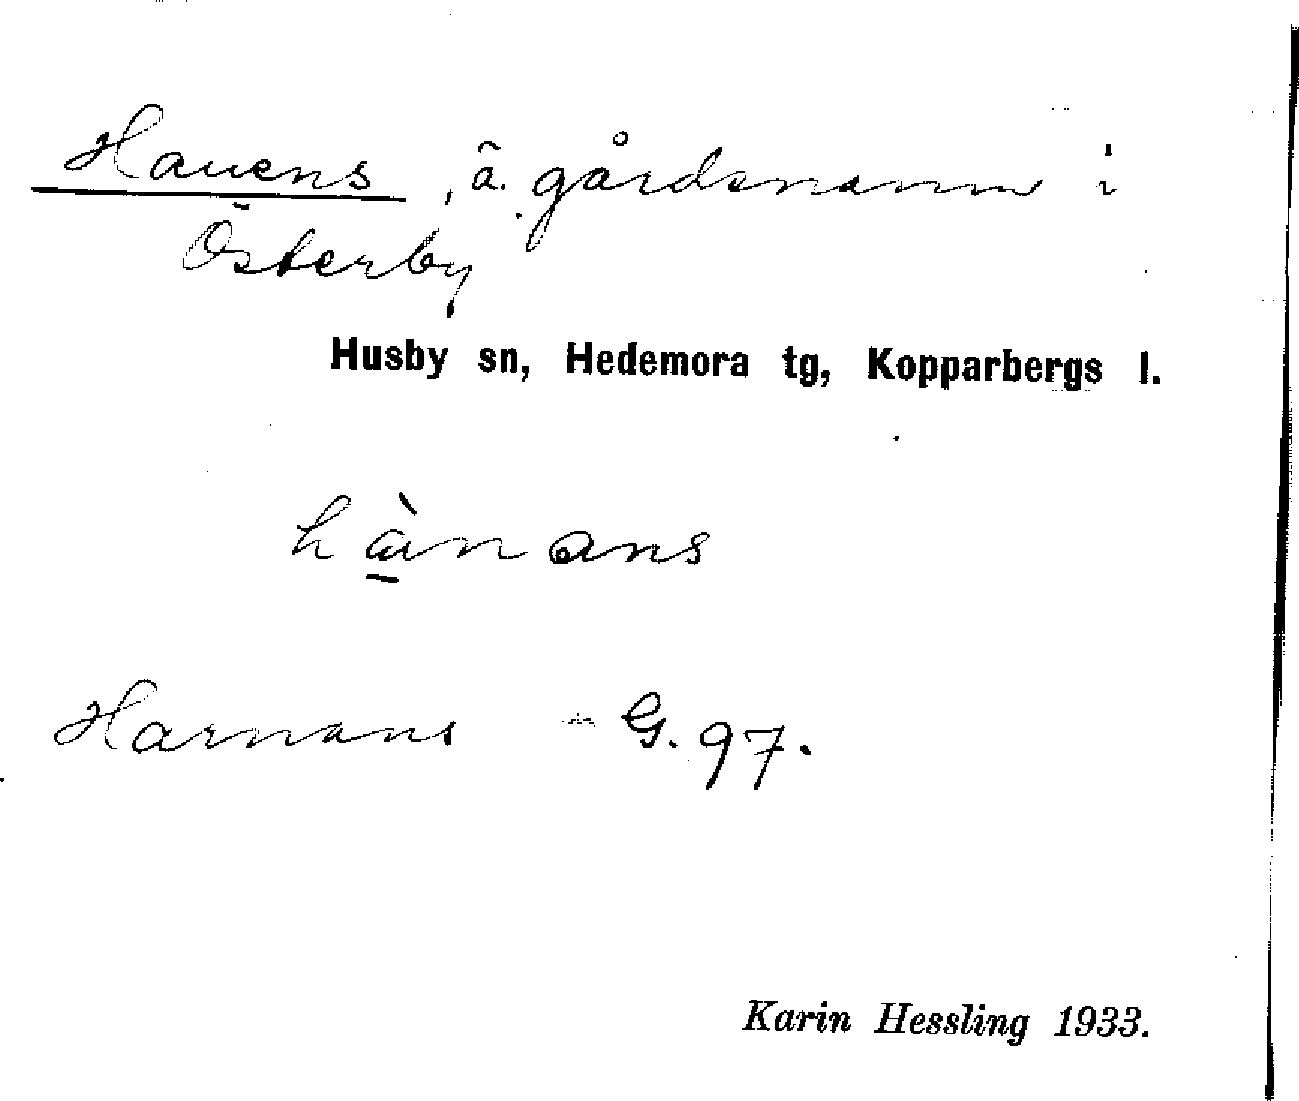 Hanens, ä. gårdsnamn i
Österby
Husby sn, Hedemora tg, Kopparbergs l.
Harnans - G. 97.
Karin Hessling 1933.